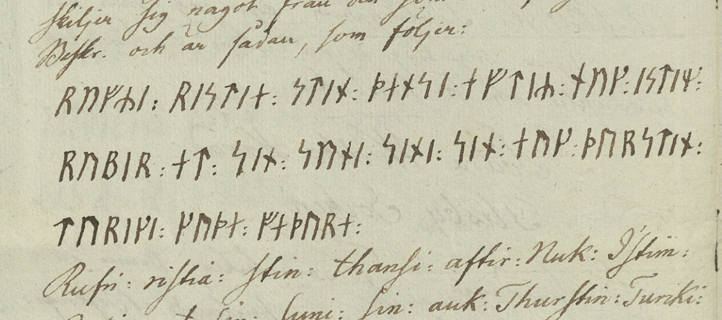 skiljer sig något från den som
Beskr. och är sådan, som följer:
ᚱᚢᚠᚾᛁ: ᚱᛁᛋᛏᛁᛅ: ᛋᛏᛁᚾ: ᚦᛅᚾᛋᛁ: ᛅᚠᛏᛁᛦ: ᚾᚢᚴ: ᛁᛋᛏᛁᛘ:
ᚱᚢᛒᛁᚱ: ᛅᛏ: ᛋᛁᚾ: ᛋᚢᚾᛁ: ᛋᛁᚾᛁ: ᛋᛁᚾ: ᛅᚢᚴ: ᚦᚢᚱᛋᛏᛁᚾ:
ᛏᚢᚱᛁᚴᛁ: ᚴᚢᚦᛅ: ᚠᛅᚦᚢᚱᛅ:
Rufni: ristia: stin: thansi: aftir: Nuk: Istim:
suni: sin: auk: Thurstin: Turiki: